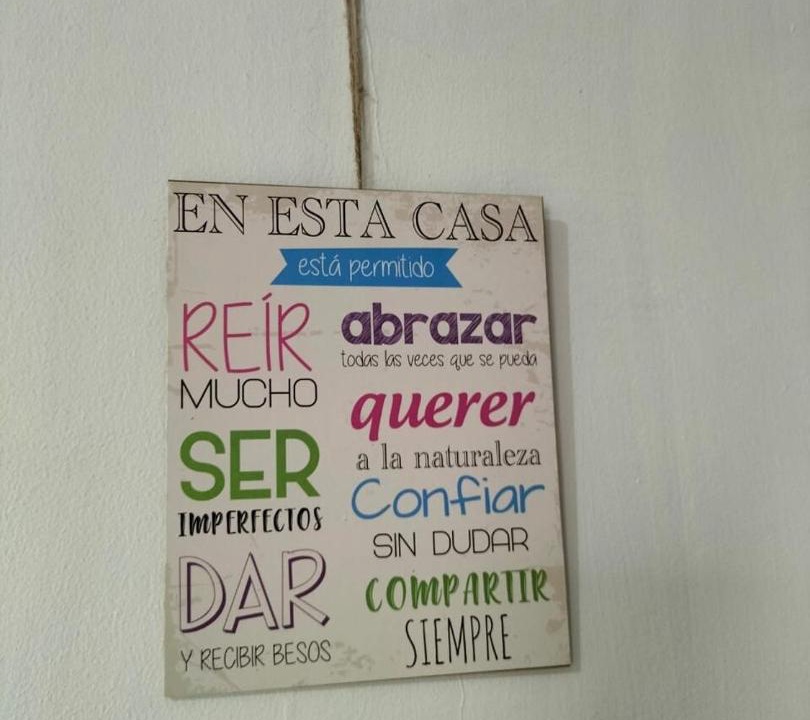 EN ESTA CASA
está permitido
REÍR
MUCHO
SER
IMPERFECTOS
DAR
Y RECIBIR BESOS
abrazar
todas las veces que se pueda
querer
a la naturaleza
Confiar
SIN DUDAR
COMPARTIR
SIEMPRE